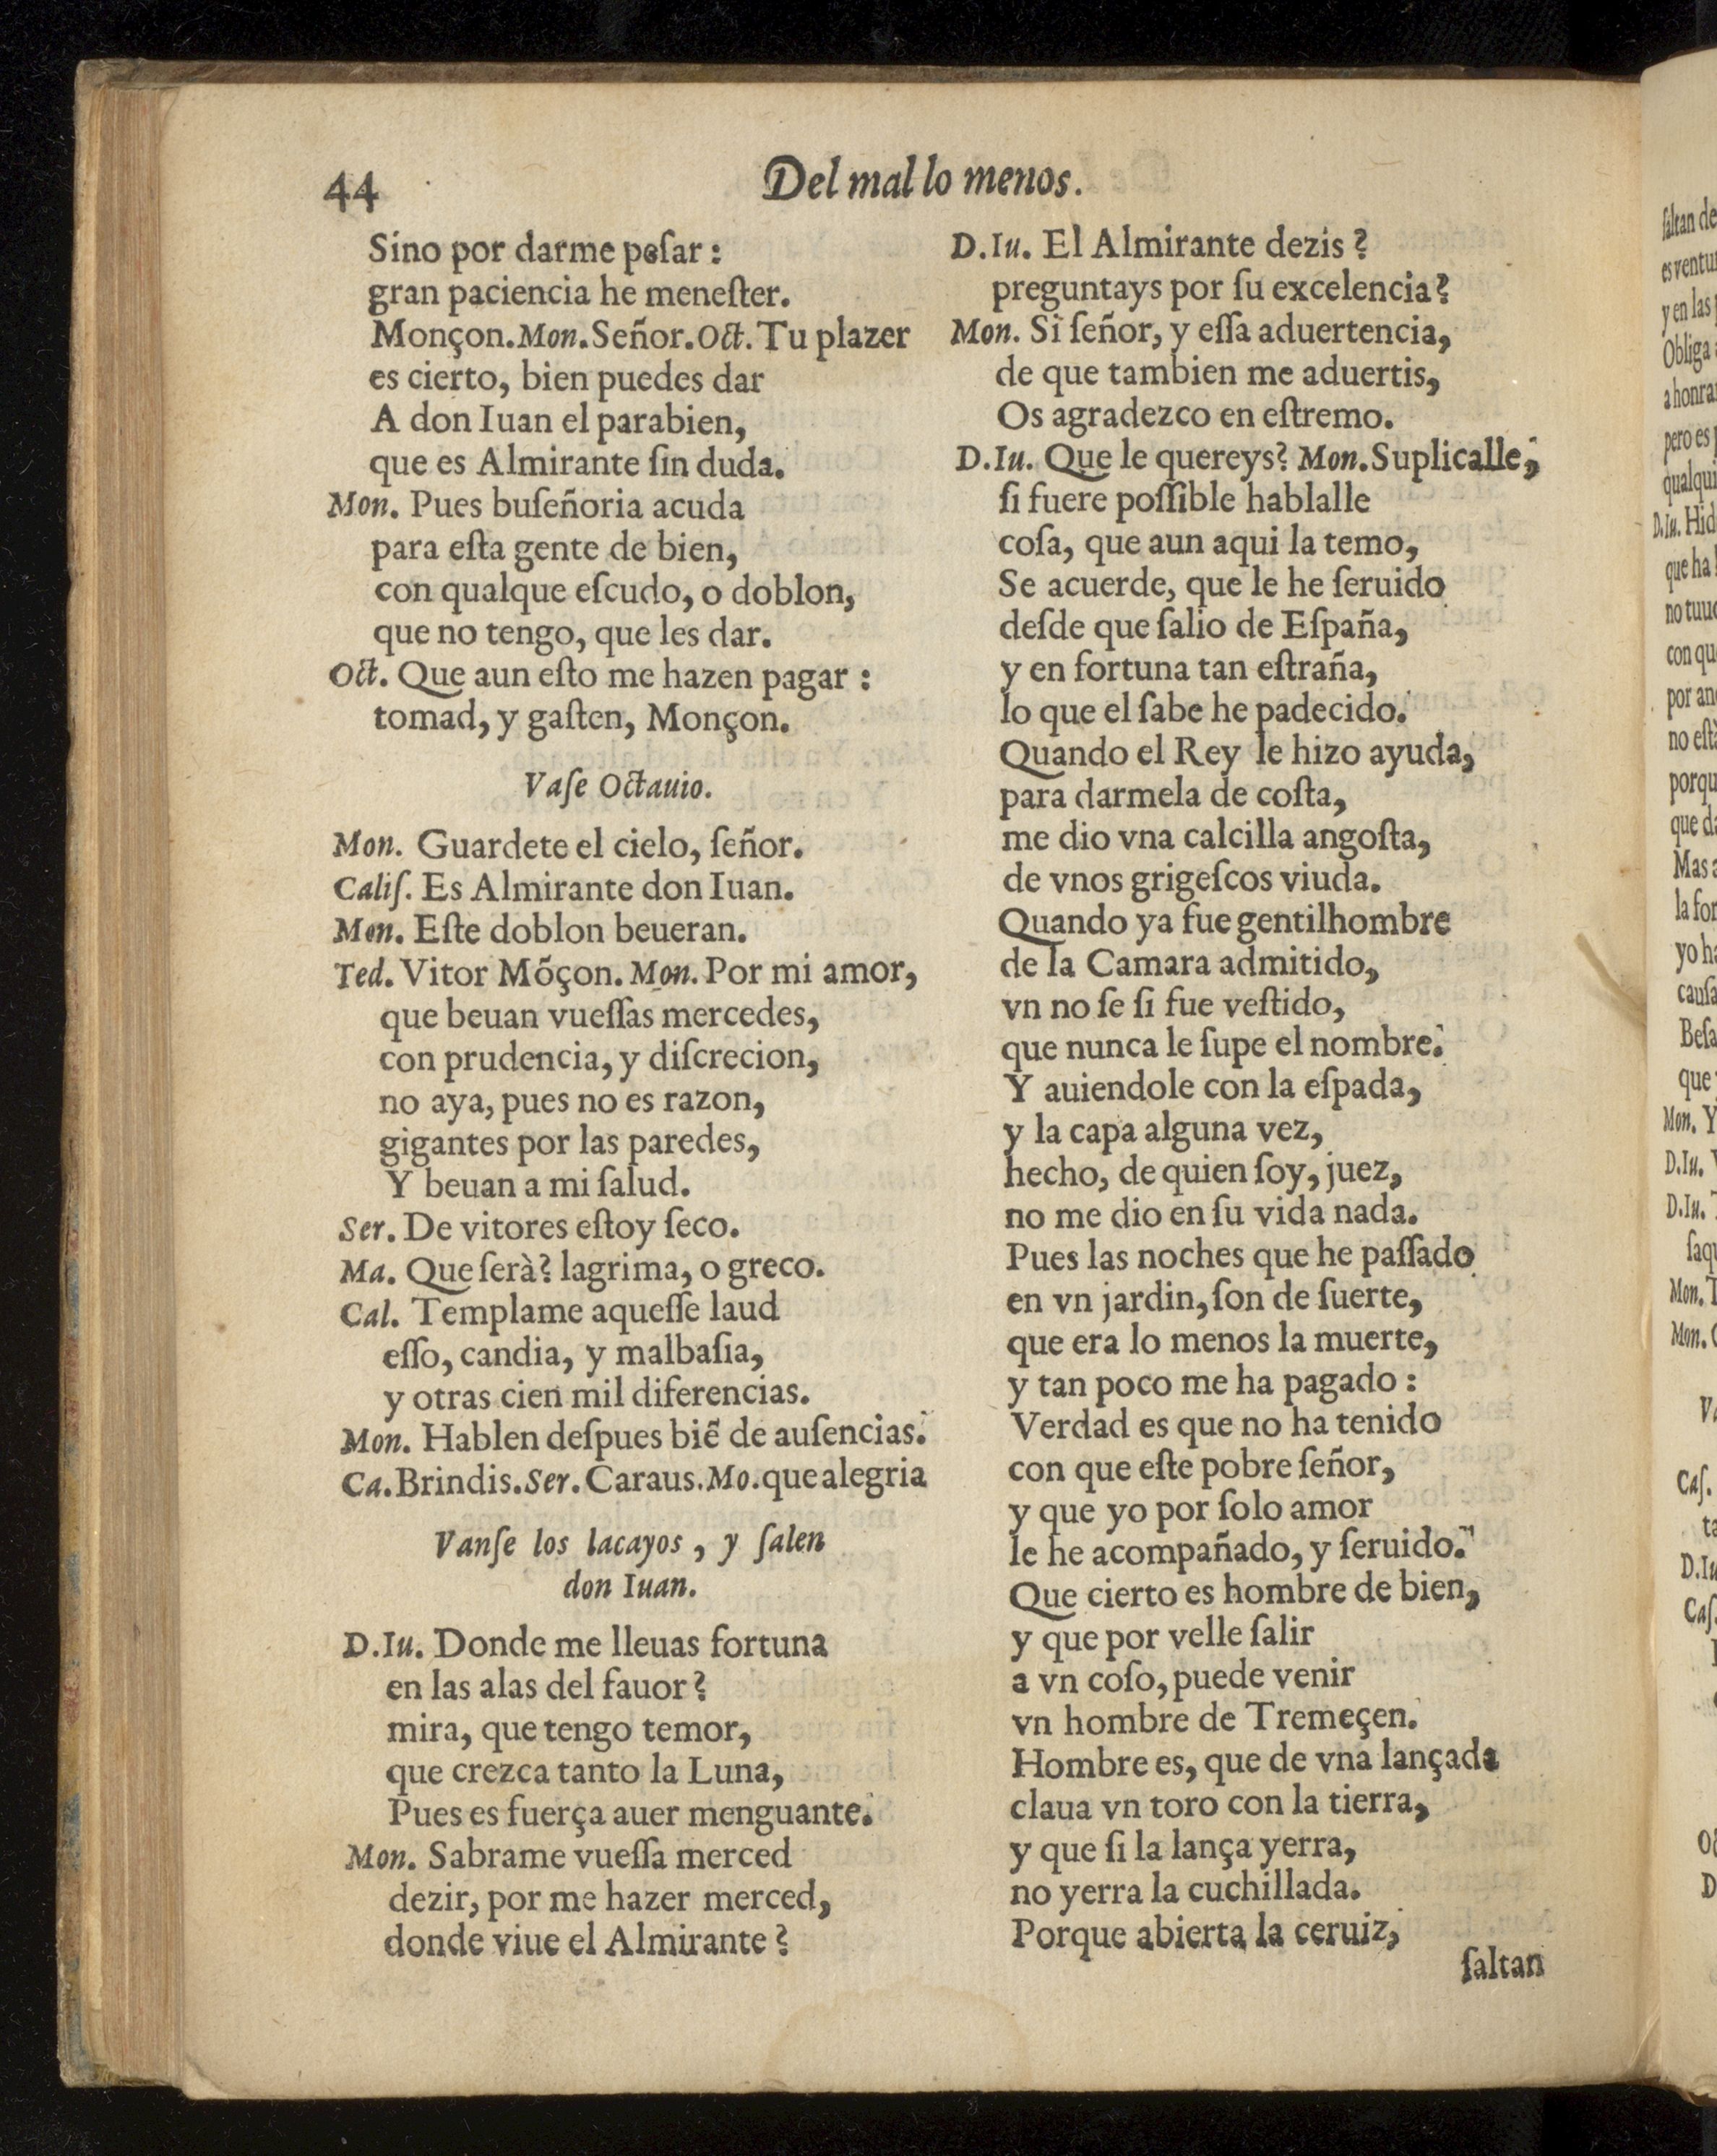 44
Del mal lo menos.
Sino por darme pesar:
gran paciencia he meneſter.
Monçon. Mon. Señor. Oct. Tu plazer
es cierto, bien puedes dar
A don Iuan el parabien,
que es Almirante ſin duda.
Mon. Pues buſeñoria acuda
para eſta gente de bien,
con qualque eſcudo, o doblon,
que no tengo, que les dar.
Oct. Que aun eſto me hazen pagar:
tomad, y gaſten, Monçon.
Vaſe Octauio.
Mon. Guardete el cielo, ſeñor.
Caliſ. Es Almirante don Iuan.
Mon. Eſte doblon beueran.
Ted. Vitor Mõçon. Mon. Por mi amor,
que beuan vueſſas mercedes,
con prudencia, y diſcrecion,
no aya, pues no es razon,
gigantes por las paredes,
Y beuan a mi ſalud.
Ser. De vitores eſtoy ſeco.
Ma. Que ſerà? lagrima, o greco.
Cal. Templame aqueſſe laud
eſſo, candia, y malbaſia,
y otras cien mil diferencias.
Mon. Hablen deſpues biẽ de auſencias.
Ca. Brindis. Ser. Caraus. Mo. que alegria
Vanſe los lacayos, y ſalen
don Iuan.
D.Iu. Donde me lleuas fortuna
en las alas del fauor?
mira, que tengo temor,
que crezca tanto la Luna,
Pues es fuerça auer menguante.
Mon. Sabrame vueſſa merced
dezir, por me hazer merced,
donde viue el Almirante?
D.Iu. El Almirante dezis?
preguntays por ſu excelencia?
Mon. Si ſeñor, y eſſa aduertencia,
de que tambien me aduertis,
Os agradezco en eſtremo.
D.Iu. Que le quereys? Mon. Suplicalle,
ſi fuere poſſible hablalle
coſa, que aun aqui la temo,
Se acuerde, que le he ſeruido
deſde que ſalio de Eſpaña,
y en fortuna tan eſtraña,
lo que el ſabe he padecido.
Quando el Rey le hizo ayuda,
para darmela de coſta,
me dio vna calcilla angoſta,
de vnos grigeſcos viuda.
Quando ya fue gentilhombre
de la Camara admitido,
vn no ſe ſi fue veſtido,
que nunca le ſupe el nombre.
Y auiendole con la eſpada,
y la capa alguna vez,
hecho, de quien ſoy, juez,
no me dio en ſu vida nada.
Pues las noches que he paſſado
en vn jardin, ſon de ſuerte,
que era lo menos la muerte,
y tan poco me ha pagado:
Verdad es que no ha tenido
con que eſte pobre ſeñor,
y que yo por ſolo amor
le he acompañado, y ſeruido.
Que cierto es hombre de bien,
y que por velle ſalir
a vn coſo, puede venir
vn hombre de Tremeçen.
Hombre es, que de vna lançada
claua vn toro con la tierra,
y que ſi la lança yerra,
no yerra la cuchillada.
Porque abierta la ceruiz,
ſaltan